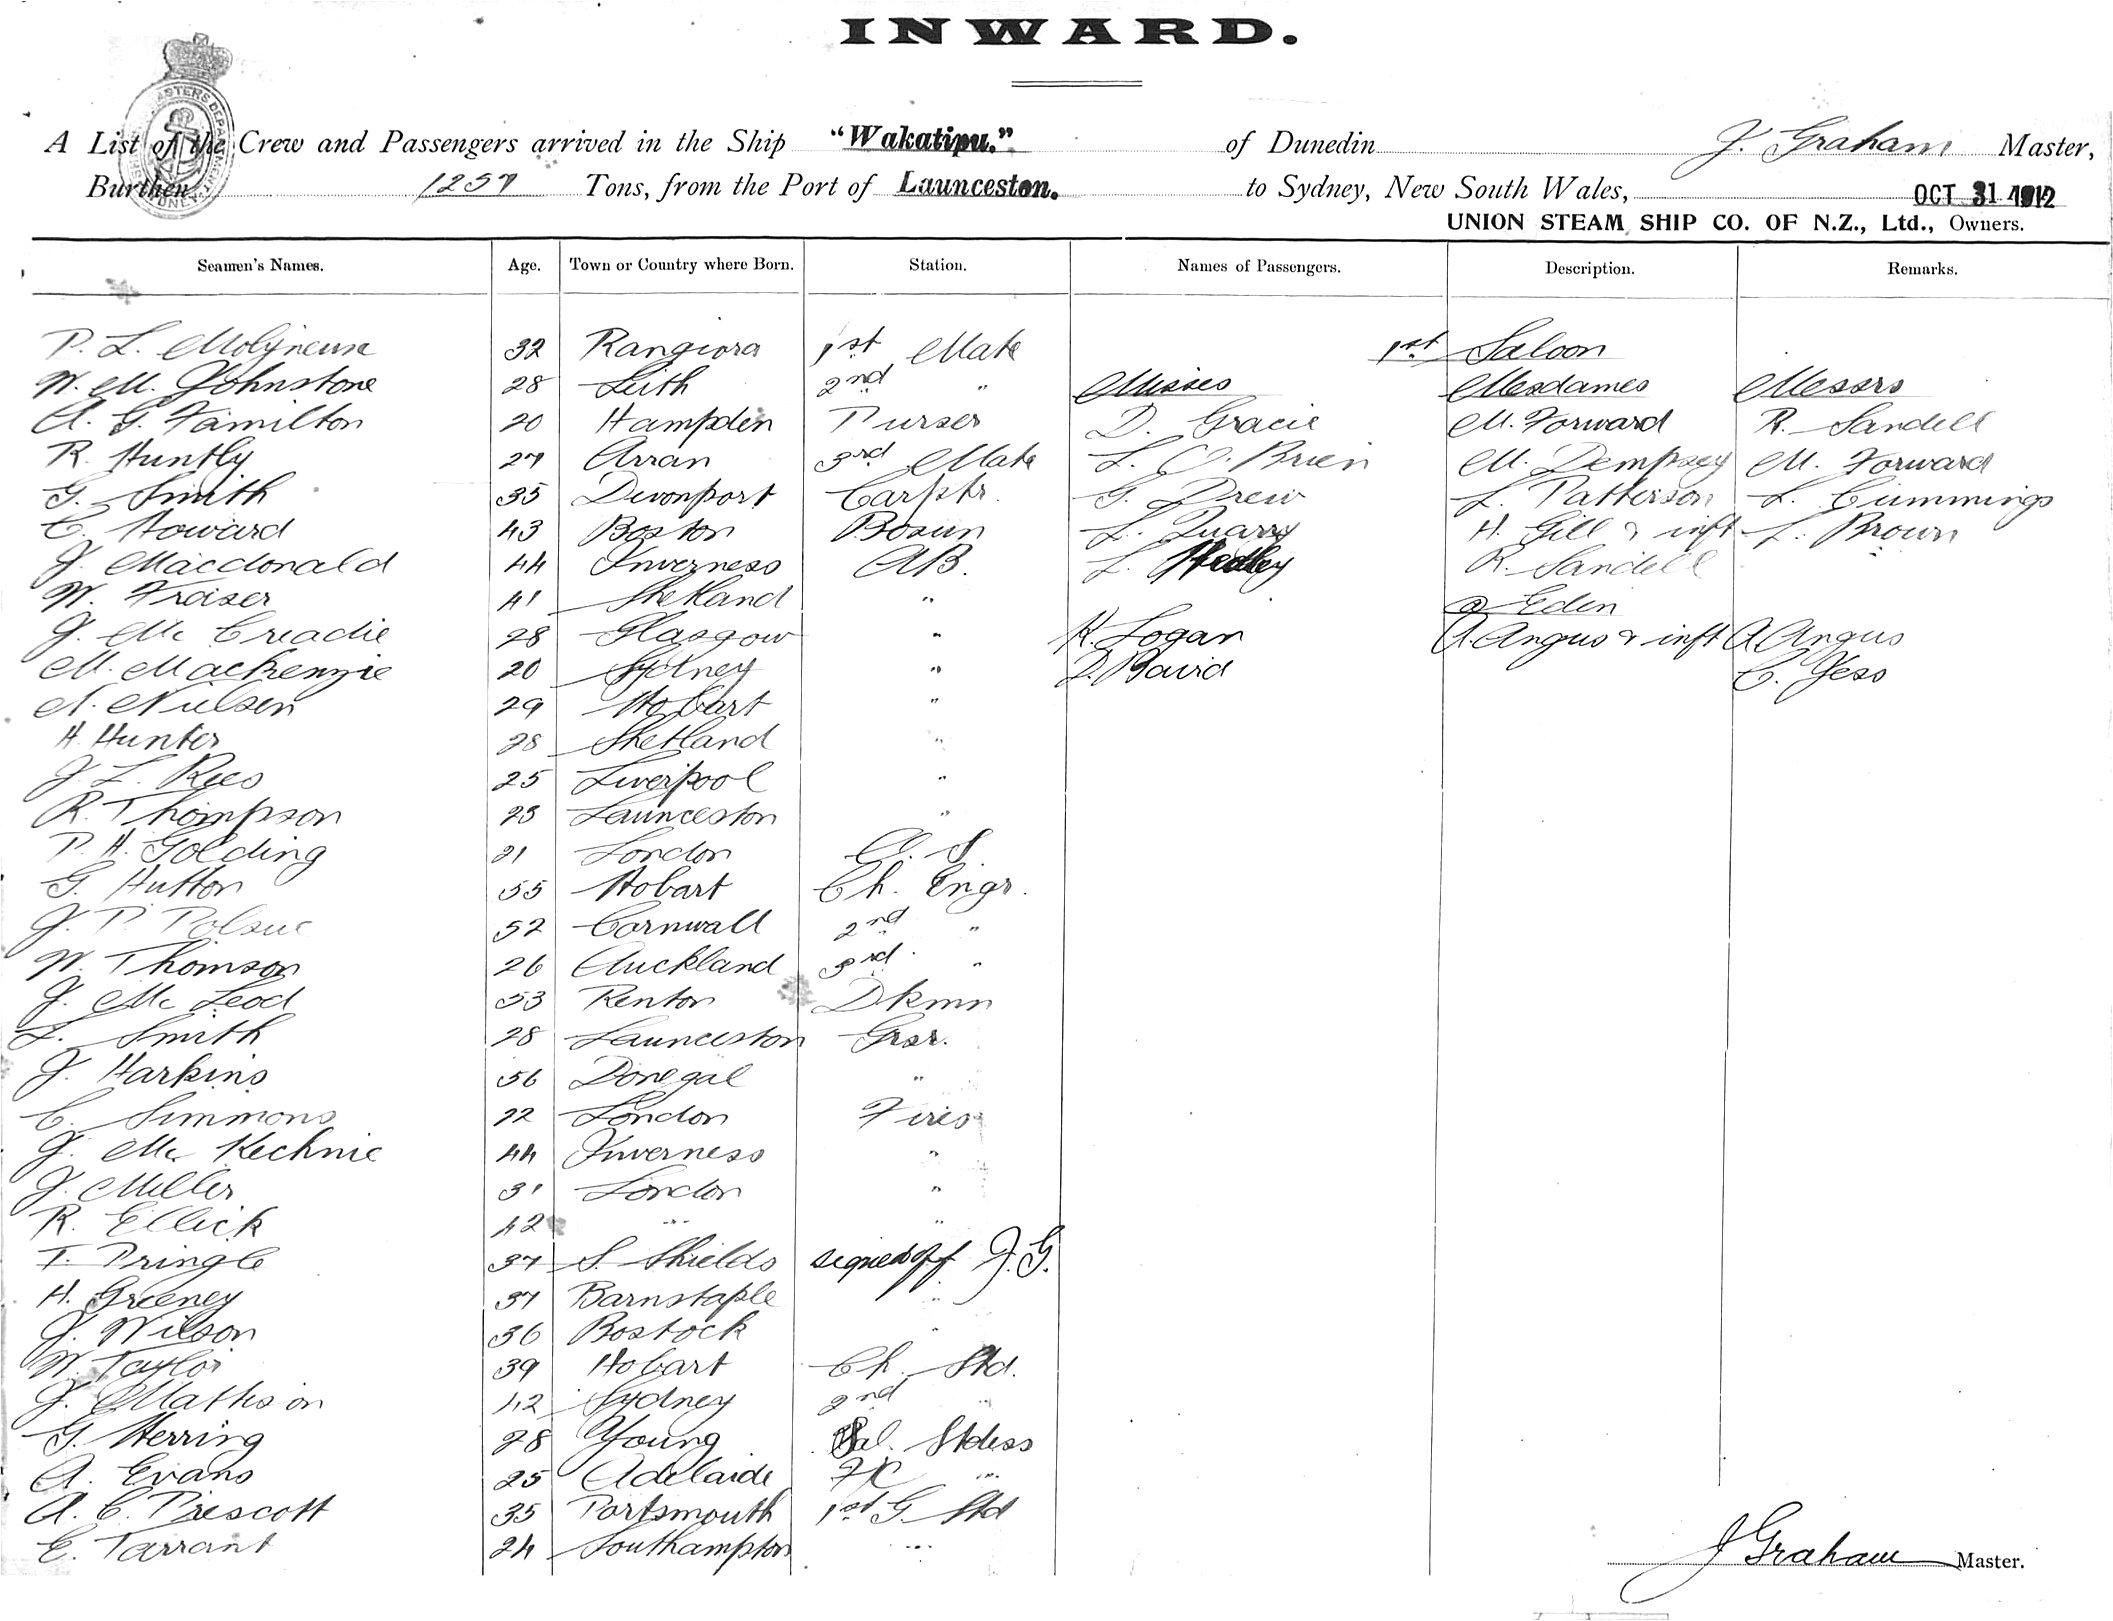 INWARD.
A List of the Crew and Passengers arrived in the Ship "Wakatipu." of Dunedin J. Graham Master,
Burthen 1257 Tons, from the Port of Launceston. to Sydney, New South Wales, OCT 31 1912
UNION STEAM SHIP CO. OF N.Z., Ltd., Owners.
Seamen's Names. Age. Town or Country where Born. Station. Names of Passengers. Description. Remarks.
P. L. Molyneux 32 Rangiora 1st Mate 1st Saloon
W. M. Johnstone 28 Leith 2nd " Misses Mesdames Messrs
A. G. Familton 20 Hampden Purser D. Gracie M. Forward R. Sandell
R. Huntly 27 Arran 3rd Mate L. O'Brien M. Dempsey M. Forward
G. Smith 35 Devonport Carptr. G. Drew L. Patterson L. Cummings
C. Howard 43 Boston Bosun L. Quarry H. Gill & inft L. Brown
J. Macdonald 44 Inverness AB. L. Hedley R. Sandell
W. Fraser 41 Shetland " Eden
J. Mc Creadie 28 Glasgow " K. Logan A. Angus & inft A Angus
M. Mackenzie 20 Sydney " D. Baird C. Yess
N. Nielsen 29 Hobart "
H. Hunter 28 Shetland "
J. L. Rees 25 Liverpool "
R. Thompson 23 Launceston "
P. H. Golding 21 London O. S.
G. Hutton 55 Hobart Ch. Engr.
J. P. Polsue 52 Cornwall 2nd "
W. Thomson 26 Auckland 3rd "
J. Mc Leod 53 Renton Dkmn
L. Smith 28 Launceston Grsr.
J. Harkins 56 Donegal "
C. Simmons 22 London Fires
J. Mc Kechnie 44 Inverness "
J. Miller 31 London "
R. Ellick 42 " "
T. Pringle 37 S. Shields signed off J. G.
H. Greeney 37 Barnstaple "
J. Wilson 36 Rostock "
W. Taylor 39 Hobart Ch. Std.
J. Mathison 42 Sydney 2nd "
G. Herring 28 Young Sal. Stdess
A. Evans 25 Adelaide F/C "
A. C. Prescott 35 Portsmouth 1st G Std
E. Tarrant 24 Southampton "
J Graham Master.